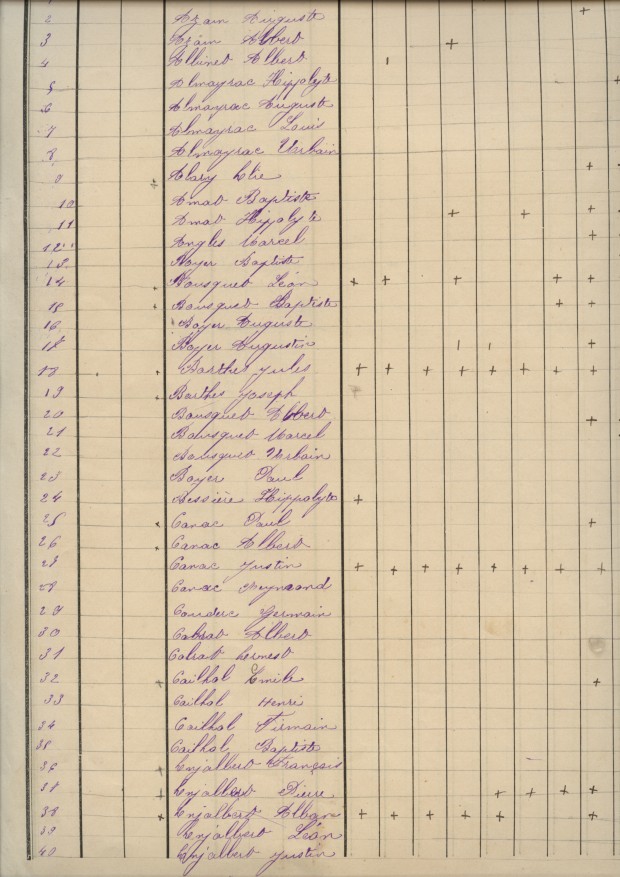 2 Azam Auguste
3 Azam Albert
4 Albinet Albert
5 Almayrac Hippolyte
6 Almayrac Auguste
7 Almayrac Louis
8 Almayrac Urbain
9 Alary Elie
10 Amat Baptiste
11 Amat Hippolyte
12 Anglès Marcel
13 Boyer Baptiste
14 Bousquet Léon
15 Bousquet Baptiste
16 Boyer Auguste
17 Boyer Augustin
18 Barthes Jules
19 Barthes Joseph
20 Bousquet Albert
21 Bousquet Marcel
22 Bousquet Urbain
23 Boyer Paul
24 Bessière Hippolyte
25 Canac Paul
26 Canac Albert
27 Canac Justin
28 Canac Raymond
29 Couderc Germain
30 Cabrat Albert
31 Cabrat Ernest
32 Cailhol Emile
33 Cailhol Henri
34 Cailhol Firmain
35 Cailhol Baptiste
36 Enjalbert François
37 Enjalbert Pierre
38 Enjalbert Alban
39 Enjalbert Léon
40 Enjalbert Justin